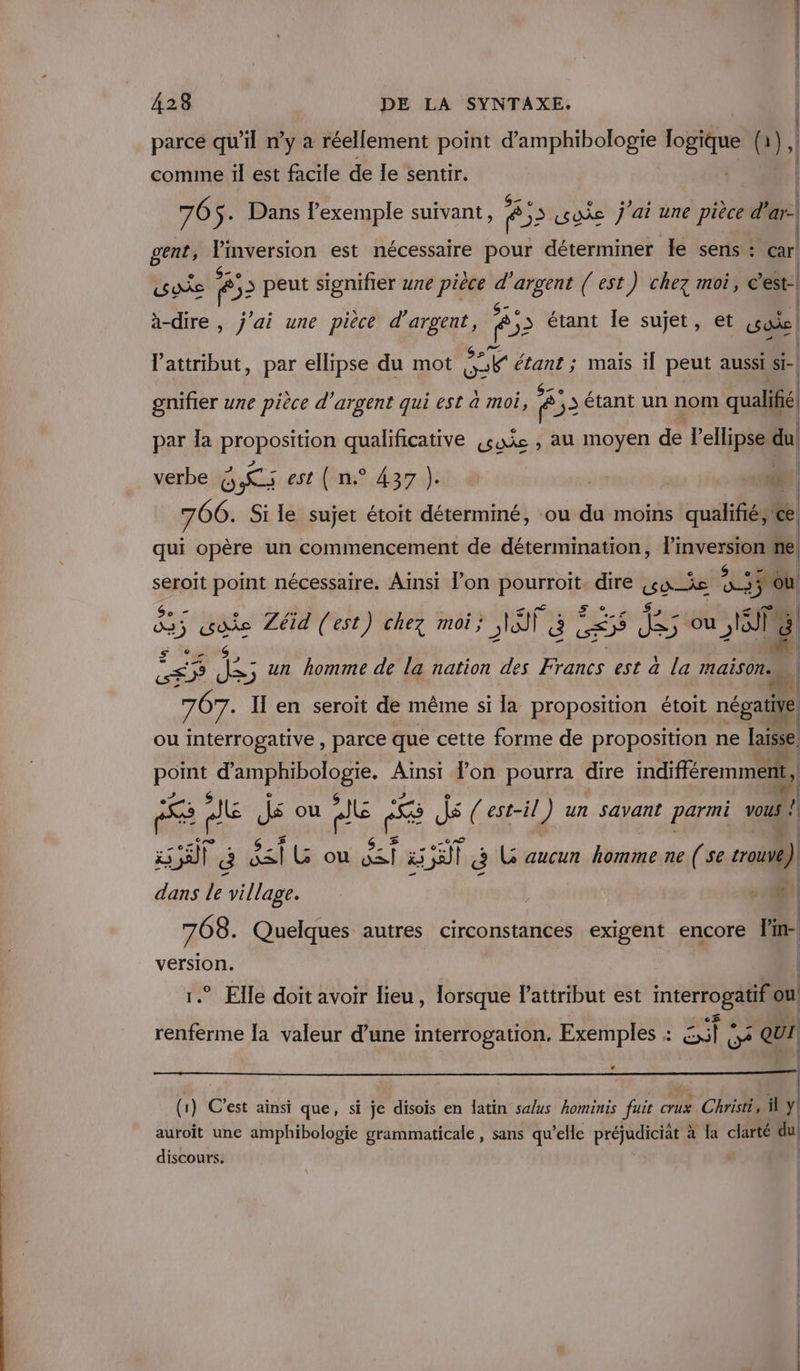 428 DE LA SYNTAXE.
parce qu'il n'y a réellement point d'amphibologie logique (1),
comme il est facile de le sentir.
765. Dans l'exemple suivant, عِنْدِى دِرْهَمٌ j'ai une pièce d'ar-
gent, l'inversion est nécessaire pour déterminer le sens : car
دِرْهَمٌ عِنْدِى peut signifier une pièce d'argent ( est ) chez moi, c'est-
à-dire, j'ai une pièce d'argent, دِرْهَمٌ étant le sujet, et عندى
l'attribut, par ellipse du mot كَائِنٌ étant ; mais il peut aussi si-
gnifier une pièce d'argent qui est à moi, دِرْهَمٌ étant un nom qualifié
par la proposition qualificative عندى, au moyen de l'ellipse du
verbe يَكُونُ est ( n.° 437 ).
766. Si le sujet étoit déterminé, ou du moins qualifié, ce
qui opère un commencement de détermination, l'inversion ne
seroit point nécessaire. Ainsi l'on pourroit dire عندى زَيْدٌ ou
زَيْدٌ عندى Zéid (est) chez moi ; فى ٱلدَّارِ رَجُلٌ إِفْرَنْجِىٌّ ou فى ٱلدار
رَجُلٌ un homme de la nation des Francs est à la maison.
767. Il en seroit de même si la proposition étoit négative
ou interrogative, parce que cette forme de proposition ne laisse
point d'amphibologie. Ainsi l'on pourra dire indifféremment,
هَلْ عَالِمٌ فِيكُمْ ou هَلْ فِيكُمْ عَالِمٌ ( est-il ) un savant parmi vous !
مَا أَحَدٌ فى ٱلْقَرْيَةِ ou مَا فى ٱلْقَرْيَةِ أَحَدٌ aucun homme ne ( se trouve )
dans le village.
768. Quelques autres circonstances exigent encore l'in-
version.
1.° Elle doit avoir lieu, lorsque l'attribut est interrogatif ou
renferme la valeur d'une interrogation. Exemples : مَنْ أَنْتَ QUI
(1) C'est ainsi que, si je disois en latin salus hominis fuit crux Christi, il y
auroit une amphibologie grammaticale, sans qu'elle préjudiciât à la clarté du
discours.